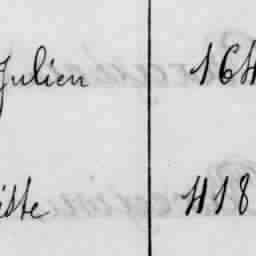 Julien 164
iste 418